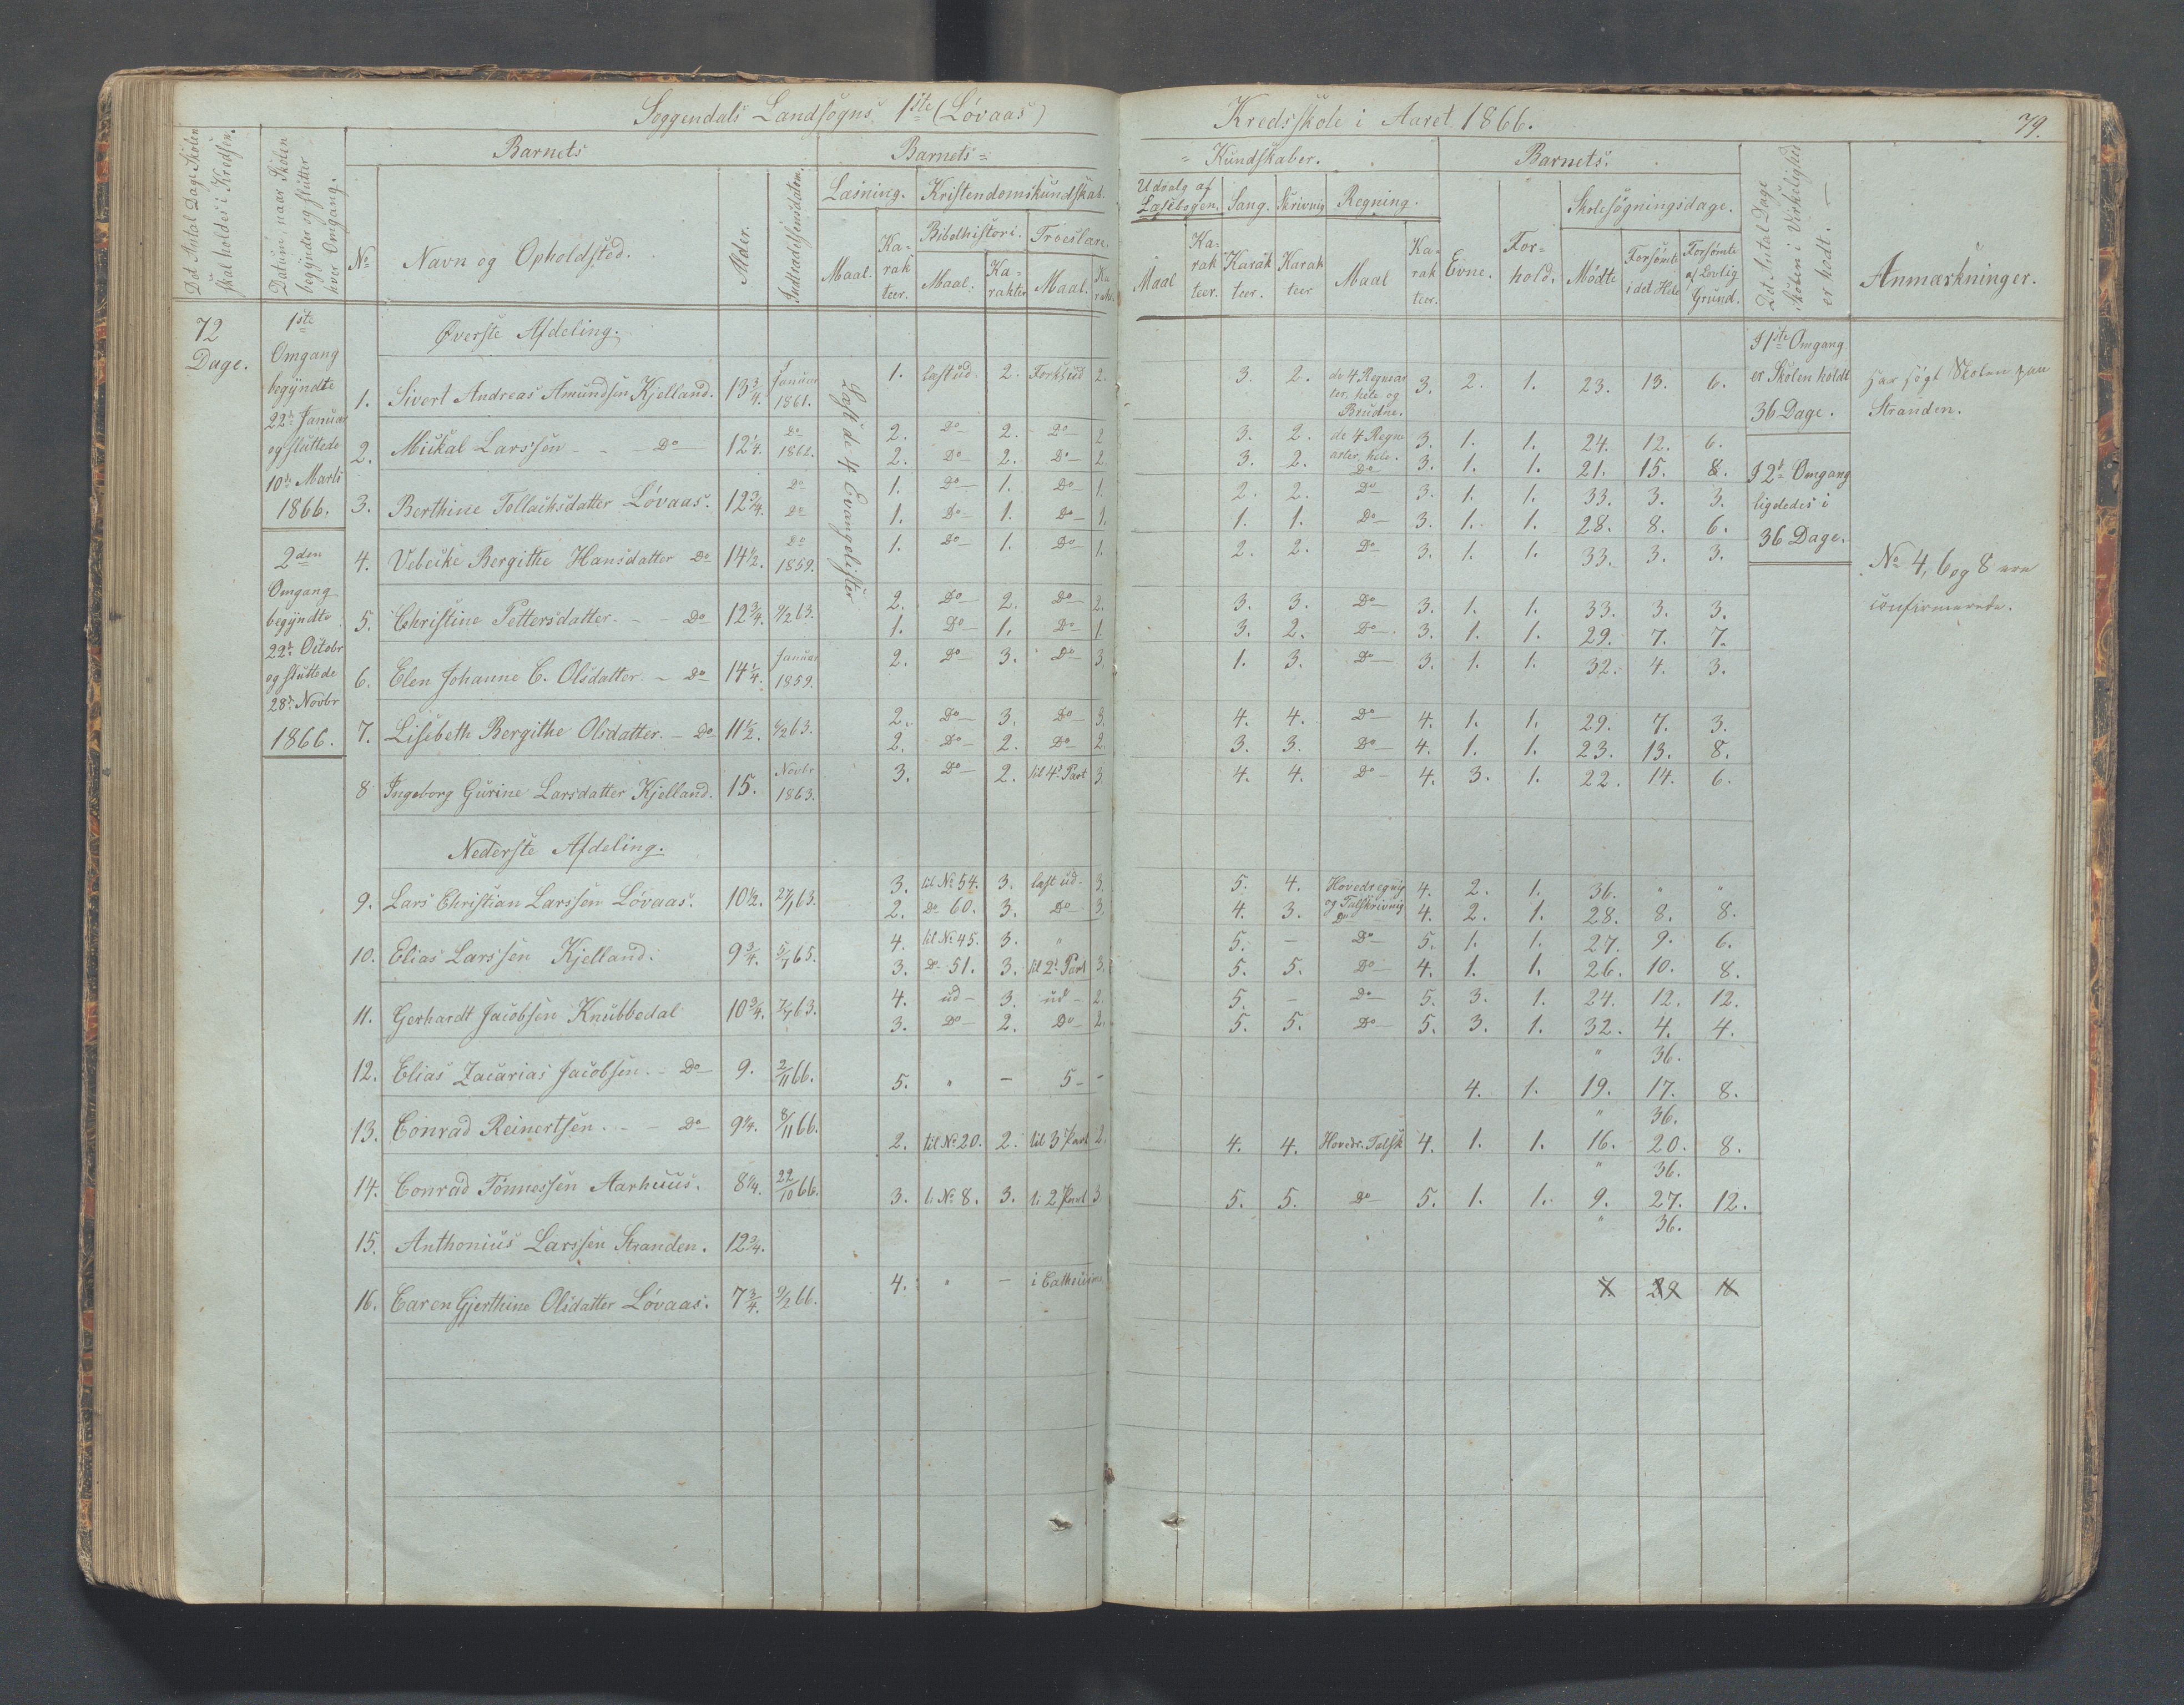 Soggendals Landsogns 1ste (Løvaas) Kredsskole i Aaret 1866. 79.
Det Antal Dage Skolen skal holdes i Kredsen.
Datum, naar Skolen begynder og slutter hver Omgang.
Barnets
Barnets =
= Kundskaber.
Barnets.
Det Antal Dage Skolen i Virkeligheden er hodt. —
Anmærkninger.
No
Navn og Opholdsted.
Alder.
Indtrædelsensdatum.
Læsning. Kristendomskundskab.
Udvalg af Læsebogen. Sang. Skrivnig Regning.
Evne. Forhold. Skolesögningsdage.
Maal. Karakteer. Bibelhistori. Troeslære.
Maal. Karakter Maal. Karak.
Maal Karakteer. Karakteer. Karakteer Maal Karakteer.
Mödte Forsömte i det Hele Forsömte af Lovlig Grund.
72 Dage.
1ste Omgang begyndte 22de Januar og sluttede 10de Marts 1866.
2den Omgang begyndte 22de Octobr og sluttede 28de Novbr 1866.
Øverste Afdeling.
Læst de 4 Evangelister
1. Sivert Andreas Amundsen Kjelland. 13 3/4. Januar 1861. 1. læst ud. 2. Forkl. ud 2. 3. 2. de 4 Regnearter, hele og Brudne. 3. 2. 1. 23. 13. 6.
2. Mickal Larssen - - Do 12 1/4. Do 1862. 2. Do 2. Do 2 3. 2. de 4 Regnearter, hele. 3. 1. 1. 24. 12. 6.
2. Do 2. Do 2. 3. 2. Do 3. 1. 1. 21. 15. 8.
3. Berthine Tollachsdatter Løvaas. 12 3/4. Do Do 1. Do 1. Do 1. 2. 2. Do 3. 1. 1. 33. 3. 3.
1. Do 1. Do 1. 1. 1. Do 3. 1. 1. 28. 8. 6.
4. Vebecke Bergithe Hansdatter Do 14 1/2. Do 1859. 1. Do 1. Do 1. 2. 2. Do 3. 1. 1. 33. 3. 3.
5. Christine Pettersdatter. - - Do 12 3/4. 4/2 63. 2. Do 2. Do 2. 3. 3. Do 3. 1. 1. 33. 3. 3.
1. Do 1. Do 1. 3. 2. Do. 3. 1. 1. 29. 7. 7.
6. Elen Johanne C. Olsdatter. - Do 14 1/4. Januar 1859. 2. Do 3. Do 3. 1. 3. Do 3. 1. 1. 32. 4. 3.
7. Lisebeth Bergithe Olsdatter. - Do 11 1/2. 6/2 63. 2. Do 3. Do 3. 4. 4. Do 4. 1. 1. 29. 7. 3.
2. Do 2. Do 2. 3. 3. Do 4. 1. 1. 23. 13. 8.
8 Ingeborg Gurine Larsdatter Kjelland. 15. Novbr 1863. 3. Do 2. til 4de Part 3. 4. 4. Do 4. 3. 1. 22. 14. 6.
Nederste Afdeling.
9. Lars Christian Larssen Løvaas. 10 1/2. 27/1 63. 3. til No 54. 3. læst ud. 3. 5. 4. Hovedregnig og Talskrivnig 4. 2. 1. 36. " "
2. Do 60. 3. Do 3. 4. 3. Do 4. 2. 1. 28. 8. 8.
10. Elias Larssen Kjelland. 9 3/4. 5/1 65. 4. til No 45. 3. " 5. — Do 5. 1. 1. 27. 9. 6.
3. Do 51. 3. til 2de Part 3. 5. 5. Do 4. 1. 1. 26. 10. 8.
11. Gerhardt Jacobsen Knubbedal 10 3/4. 7/1 63. 4. ud - 3. ud - 2. 5. — Do 5. 3. 1. 24. 12. 12.
3. Do 2. Do 2. 5. 5. Do 5. 3. 1. 32. 4. 4.
" 36.
12. Elias Zacarias Jacobsen. - Do 9. 2/11 66. 5. " — 5 - - 4. 1. 19. 17. 8.
" 36.
13. Conrad Reinertsen. - - Do 9 1/4. 8/11 66. 2. til No 20. 2. til 3 Part 2. 4. 4. Hovedr. Talsk 4. 1. 1. 16. 20. 8.
" 36.
14. Conrad Tönnessen Aarhuus. 8 1/4. 22/10 66. 3. t. No 8. 3. t. 2 Part 3 5. 5. Do 5. 1. 1. 9. 27. 12.
" 36.
15. Anthonius Larssen Stranden. 12 3/4.
16. Caren Gjerthine Olsdatter Løvaas. 7 3/4. 9/2 66. 4. " — i Cathecism
I 1ste Omgang er Skolen holdt 36 Dage.
I 2d Omgang ligeledes i 36 Dage.
Har sögt Skolen paa Stranden.
No 4, 6 og 8 ere confirmerede.